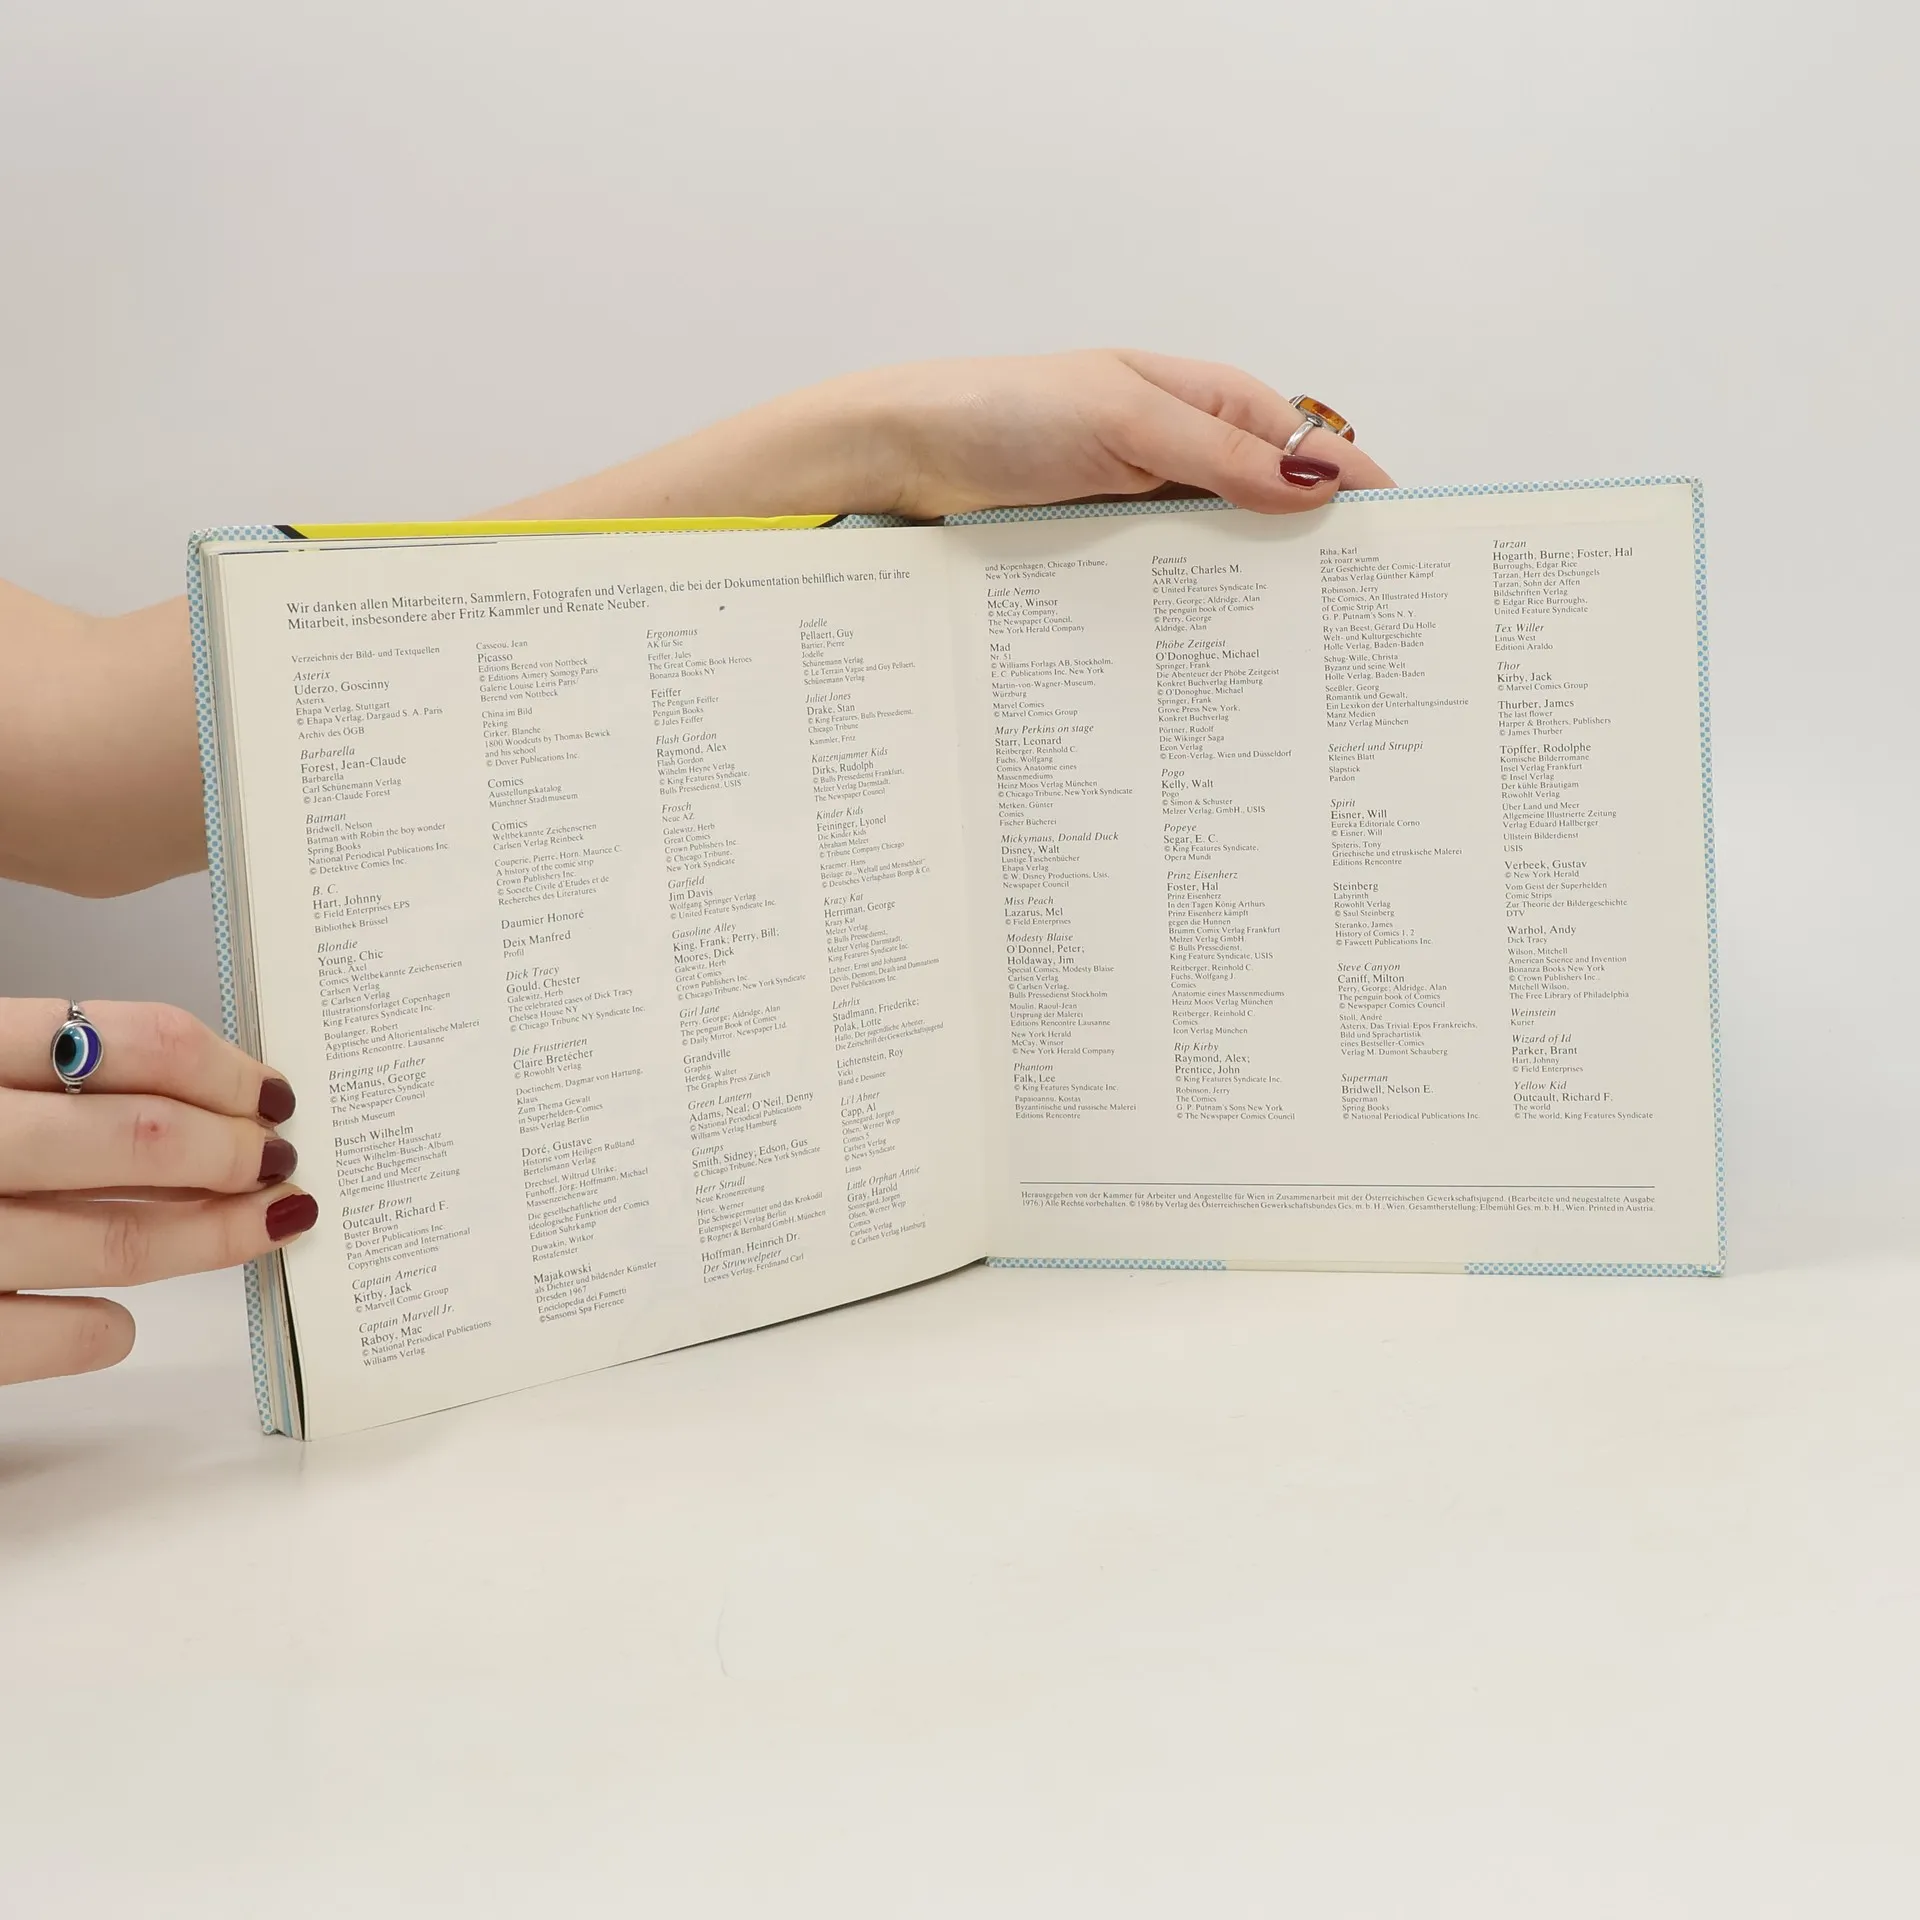 Wir danken allen Mitarbeitern, Sammlern, Fotografen und Verlagen, die bei der Dokumentation behilflich waren, für ihre
Mitarbeit, insbesondere aber Fritz Kammler und Renate Neuber.
Verzeichnis der Bild- und Textquellen
Asterix
Uderzo, Goscinny
Asterix
Ehapa Verlag, Stuttgart
© Ehapa Verlag, Dargaud S. A. Paris
Archiv des ÖGB
Barbarella
Forest, Jean-Claude
Barbarella
Carl Schünemann Verlag
© Jean-Claude Forest
Batman
Bridwell, Nelson
Batman with Robin the boy wonder
Spring Books
National Periodical Publications Inc.
© Detektive Comics Inc.
B. C.
Hart, Johnny
© Field Enterprises EPS
Bibliothek Brüssel
Blondie
Young, Chic
Brück, Axel
Comics Weltbekannte Zeichenserien
Carlsen Verlag
© Carlsen Verlag
Illustrationsforlaget Copenhagen
King Features Syndicate Inc.
Boulanger, Robert
Ägyptische und Altorientalische Malerei
Editions Rencontre, Lausanne
Bringing up Father
McManus, George
© King Features Syndicate
The Newspaper Council
British Museum
Busch Wilhelm
Humoristischer Hausschatz
Neues Wilhelm-Busch-Album
Deutsche Buchgemeinschaft
Über Land und Meer
Allgemeine Illustrierte Zeitung
Buster Brown
Outcault, Richard F.
Buster Brown
© Dover Publications Inc.
Pan American and International
Copyrights conventions
Captain America
Kirby, Jack
© Marvell Comic Group
Captain Marvell Jr.
Raboy, Mac
© National Periodical Publications
Williams Verlag
Casseou, Jean
Picasso
Editions Berend von Nottbeck
© Editions Aimery Somogy Paris
Galerie Louise Leiris Paris
Berend von Nottbeck
China im Bild
Peking
Cirker, Blanche
1800 Woodcuts by Thomas Bewick
and his school
© Dover Publications Inc.
Comics
Ausstellungskatalog
Münchner Stadtmuseum
Comics
Weltbekannte Zeichenserien
Carlsen Verlag Reinbeck
Couperie, Pierre, Horn, Maurice C.
A history of the comic strip
Crown Publishers Inc.
© Societe Civile d'Etudes et de
Recherches des Literatures
Daumier Honoré
Deix Manfred
Profil
Dick Tracy
Gould, Chester
Galewitz, Herb
The celebrated cases of Dick Tracy
Chelsea House NY
© Chicago Tribune NY Syndicate Inc.
Die Frustrierten
Claire Bretécher
© Rowohlt Verlag
Doetinchem, Dagmar von Hartung,
Klaus
Zum Thema Gewalt
in Superhelden-Comics
Basis Verlag Berlin
Doré, Gustave
Historie vom Heiligen Rußland
Bertelsmann Verlag
Drechsel, Wiltrud Ulrike,
Funhoff, Jörg, Hoffmann, Michael
Massenzeichenware
Die gesellschaftliche und
ideologische Funktion der Comics
Edition Suhrkamp
Duwakin, Witkor
Rostafenster
Majakowski
als Dichter und bildender Künstler
Dresden 1967
Enciclopedia dei Fumetti
©Sansonsi Spa Fierence
Ergonomus
AK für Sie
Feiffer, Jules
The Great Comic Book Heroes
Bonanza Books NY
Feiffer
The Penguin Feiffer
Penguin Books
© Jules Feiffer
Flash Gordon
Raymond, Alex
Flash Gordon
Wilhelm Heyne Verlag
© King Features Syndicate,
Bulls Pressedienst, USIS
Frosch
Neue AZ
Galewitz, Herb
Great Comics
Crown Publishers Inc.
© Chicago Tribune,
New York Syndicate
Garfield
Jim Davis
Wolfgang Springer Verlag
© United Feature Syndicate Inc.
Gasoline Alley
King, Frank; Perry, Bill;
Moores, Dick
Galewitz, Herb
Great Comics
Crown Publishers Inc.
© Chicago Tribune, New York Syndicate
Girl Jane
Perry, George; Aldridge, Alan
The penguin Book of Comics
© Daily Mirror, Newspaper Ltd.
Grandville
Graphis
Herdeg, Walter
The Graphis Press Zürich
Green Lantern
Adams, Neal; O'Neil, Denny
© National Periodical Publications
Williams Verlag Hamburg
Gumps
Smith, Sidney; Edson, Gus
© Chicago Tribune, New York Syndicate
Herr Strudl
Neue Kronenzeitung
Hirte, Werner
Die Schwiegermutter und das Krokodil
Eulenspiegel Verlag Berlin
© Rogner & Bernhard GmbH, München
Hoffman, Heinrich Dr.
Der Struwwelpeter
Loewes Verlag, Ferdinand Carl
Jodelle
Pellaert, Guy
Bartier, Pierre
Jodelle
Schünemann Verlag
© Le Terrain Vague and Guy Pellaert,
Schünemann Verlag
Juliet Jones
Drake, Stan
© King Features, Bulls Pressedienst,
Chicago Tribune
Kammler, Fritz
Katzenjammer Kids
Dirks, Rudolph
© Bulls Pressedienst Frankfurt,
Melzer Verlag Darmstadt,
The Newspaper Council
Kinder Kids
Feininger, Lyonel
Die Kinder Kids
Abraham Melzer
© Tribune Company Chicago
Kraemer, Hans
Beilage zu „Weltall und Menschheit“
© Deutsches Verlagshaus Bong & Co
Krazy Kat
Herriman, George
Krazy Kat
Melzer Verlag
© Bulls Pressedienst,
Melzer Verlag Darmstadt,
King Features Syndicate Inc.
Lehner, Ernst und Johanna
Devils, Demons, Death and Damnations
Dover Publications Inc.
Lehrlix
Stadlmann, Friederike;
Polak, Lotte
Hallo, Der jugendliche Arbeiter,
Die Zeitschrift der Gewerkschaftsjugend
Lichtenstein, Roy
Vicki
Band e Dessinee
Li'l Abner
Capp, Al
Sonnegard, Jorgen
Olsen, Werner Wejp
Comics 5
Carlsen Verlag
© News Syndicate
Linus
Little Orphan Annie
Gray, Harold
Sonnegard, Jorgen
Olsen, Werner Wejp
Comics
Carlsen Verlag
© Carlsen Verlag Hamburg
und Kopenhagen, Chicago Tribune,
New York Syndicate
Little Nemo
McCay, Winsor
© McCay Company,
The Newspaper Council,
New York Herald Company
Mad
Nr. 51
© Williams Forlags AB, Stockholm,
E. C. Publications Inc. New York
Martin-von-Wagner-Museum,
Würzburg
Marvel Comics
© Marvel Comics Group
Mary Perkins on stage
Starr, Leonard
Reitberger, Reinhold C.
Fuchs, Wolfgang
Comics Anatomie eines
Massenmediums
Heinz Moos Verlag München
© Chicago Tribune, New York Syndicate
Metken, Günter
Comics
Fischer Bücherei
Mickymaus, Donald Duck
Disney, Walt
Lustige Taschenbücher
Ehapa Verlag
© W. Disney Productions, Usis,
Newspaper Council
Miss Peach
Lazarus, Mel
© Field Enterprises
Modesty Blaise
O'Donnel, Peter;
Holdaway, Jim
Special Comics, Modesty Blaise
Carlsen Verlag
© Carlsen Verlag,
Bulls Pressedienst Stockholm
Moulin, Raoul-Jean
Ursprung der Malerei
Editions Rencontre Lausanne
New York Herald
McCay, Winsor
© New York Herald Company
Phantom
Falk, Lee
© King Features Syndicate Inc.
Papaioannu, Kostas
Byzantinische und russische Malerei
Editions Rencontre
Peanuts
Schultz, Charles M.
AAR Verlag
© United Features Syndicate Inc
Perry, George; Aldridge, Alan
The penguin book of Comics
© Perry, George
Aldridge, Alan
Phöbe Zeitgeist
O'Donoghue, Michael
Springer, Frank
Die Abenteuer der Phöbe Zeitgeist
Konkret Buchverlag Hamburg
© O'Donoghue, Michael
Springer, Frank
Grove Press New York,
Konkret Buchverlag
Pörtner, Rudolf
Die Wikinger Saga
Econ Verlag
© Econ-Verlag, Wien und Düsseldorf
Pogo
Kelly, Walt
Pogo
© Simon & Schuster
Melzer Verlag, GmbH., USIS
Popeye
Segar, E. C.
© King Features Syndicate,
Opera Mundi
Prinz Eisenherz
Foster, Hal
Prinz Eisenherz
In den Tagen König Arthurs
Prinz Eisenherz kämpft
gegen die Hunnen
Brumm Comix Verlag Frankfurt
Melzer Verlag GmbH
© Bulls Pressedienst,
King Feature Syndicate, USIS
Reitberger, Reinhold C.
Fuchs, Wolfgang J.
Comics
Anatomie eines Massenmediums
Heinz Moos Verlag München
Reitberger, Reinhold C.
Comics
Icon Verlag München
Rip Kirby
Raymond, Alex;
Prentice, John
© King Features Syndicate Inc.
Robinson, Jerry
The Comics
G. P. Putnam's Sons New York
© The Newspaper Comics Council
Riha, Karl
zok roarz wumm
Zur Geschichte der Comic-Literatur
Anabas Verlag Günther Kämpf
Robinson, Jerry
The Comics, An Illustrated History
of Comic Strip Art
G. P. Putnam's Sons N. Y.
Ry van Beest, Gérard Du Holle
Welt- und Kulturgeschichte
Holle Verlag, Baden-Baden
Schug-Wille, Christa
Byzanz und seine Welt
Holle Verlag, Baden-Baden
Seeßler, Georg
Romantik und Gewalt,
Ein Lexikon der Unterhaltungsindustrie
Manz Medien
Manz Verlag München
Seicherl und Struppi
Kleines Blatt
Slapstick
Pardon
Spirit
Eisner, Will
Eureka Editoriale Corno
© Eisner, Will
Spiteris, Tony
Griechische und etruskische Malerei
Editions Rencontre
Steinberg
Labyrinth
Rowohlt Verlag
© Saul Steinberg
Steranko, James
History of Comics 1, 2
© Fawcett Publications Inc.
Steve Canyon
Caniff, Milton
Perry, George; Aldridge, Alan
The penguin book of Comics
© Newspaper Comics Council
Stoll, André
Asterix, Das Trivial-Epos Frankreichs,
Bild und Sprachartistik
eines Bestseller-Comics
Verlag M. Dumont Schauberg
Superman
Bridwell, Nelson E.
Superman
Spring Books
© National Periodical Publications Inc.
Tarzan
Hogarth, Burne; Foster, Hal
Burroughs, Edgar Rice
Tarzan, Herr des Dschungels
Tarzan, Sohn der Affen
Bildschriften Verlag
© Edgar Rice Burroughs,
United Feature Syndicate
Tex Willer
Linus West
Editioni Araldo
Thor
Kirby, Jack
© Marvel Comics Group
Thurber, James
The last flower
Harper & Brothers, Publishers
© James Thurber
Töpffer, Rodolphe
Komische Bilderromane
Insel Verlag Frankfurt
© Insel Verlag
Der kühle Bräutigam
Rowohlt Verlag
Über Land und Meer
Allgemeine Illustrierte Zeitung
Verlag Eduard Hallberger
Ullstein Bilderdienst
USIS
Verbeek, Gustav
© New York Herald
Vom Geist der Superhelden
Comic Strips
Zur Theorie der Bildergeschichte
DTV
Warhol, Andy
Dick Tracy
Wilson, Mitchell
American Science and Invention
Bonanza Books New York
© Crown Publishers Inc.,
Mitchell Wilson,
The Free Library of Philadelphia
Weinstein
Kurier
Wizard of Id
Parker, Brant
Hart, Johnny
© Field Enterprises
Yellow Kid
Outcault, Richard F.
The world
© The world, King Features Syndicate
Herausgegeben von der Kammer für Arbeiter und Angestellte für Wien in Zusammenarbeit mit der Österreichischen Gewerkschaftsjugend. (Bearbeitete und neugestaltete Ausgabe
1976.) Alle Rechte vorbehalten. © 1986 by Verlag des Österreichischen Gewerkschaftsbundes Ges. m. b. H., Wien. Gesamtherstellung: Elbemühl Ges. m. b. H., Wien. Printed in Austria.